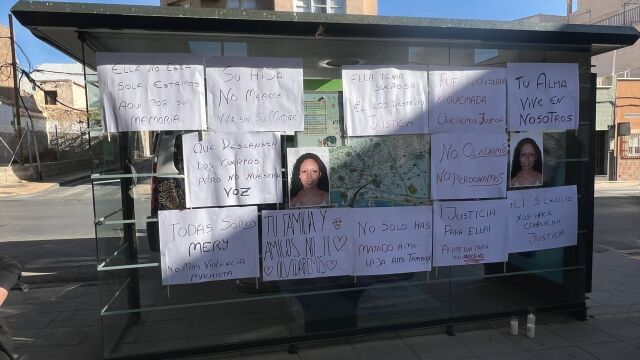 ELLA NO ESTA
SOLA, ESTAMOS
AQUI POR SU
MEMORIA
SU HIJA
NO MERECE
VIVIR SIN SU MADRE
ELLA TENIA
SUEÑOS!!
EL LOS DESTRUYO
JUSTICIA
FUE
Y QUEMADA
QUEREMOS JUSTICIA
TU ALMA
VIVE EN
NOSOTROS
QUE DESCANSEN
LOS CUERPOS,
PERO NO NUESTRA
VOZ
NO OLVIDAMOS
NO PERDONAMOS
TODAS SOMOS
MERY
NO MAS VIOLENCIA
MACHISTA
TU FAMILIA Y
AMIGOS NO TE
OLVIDAREMOS
NO SOLO HAS
MATADO A MI
HIJA A MI TAMBIEN
¡JUSTICIA
PARA ELLA!
PARA
SU ASESINO
EL SILENCIO
NOS HACE
JUSTICIA